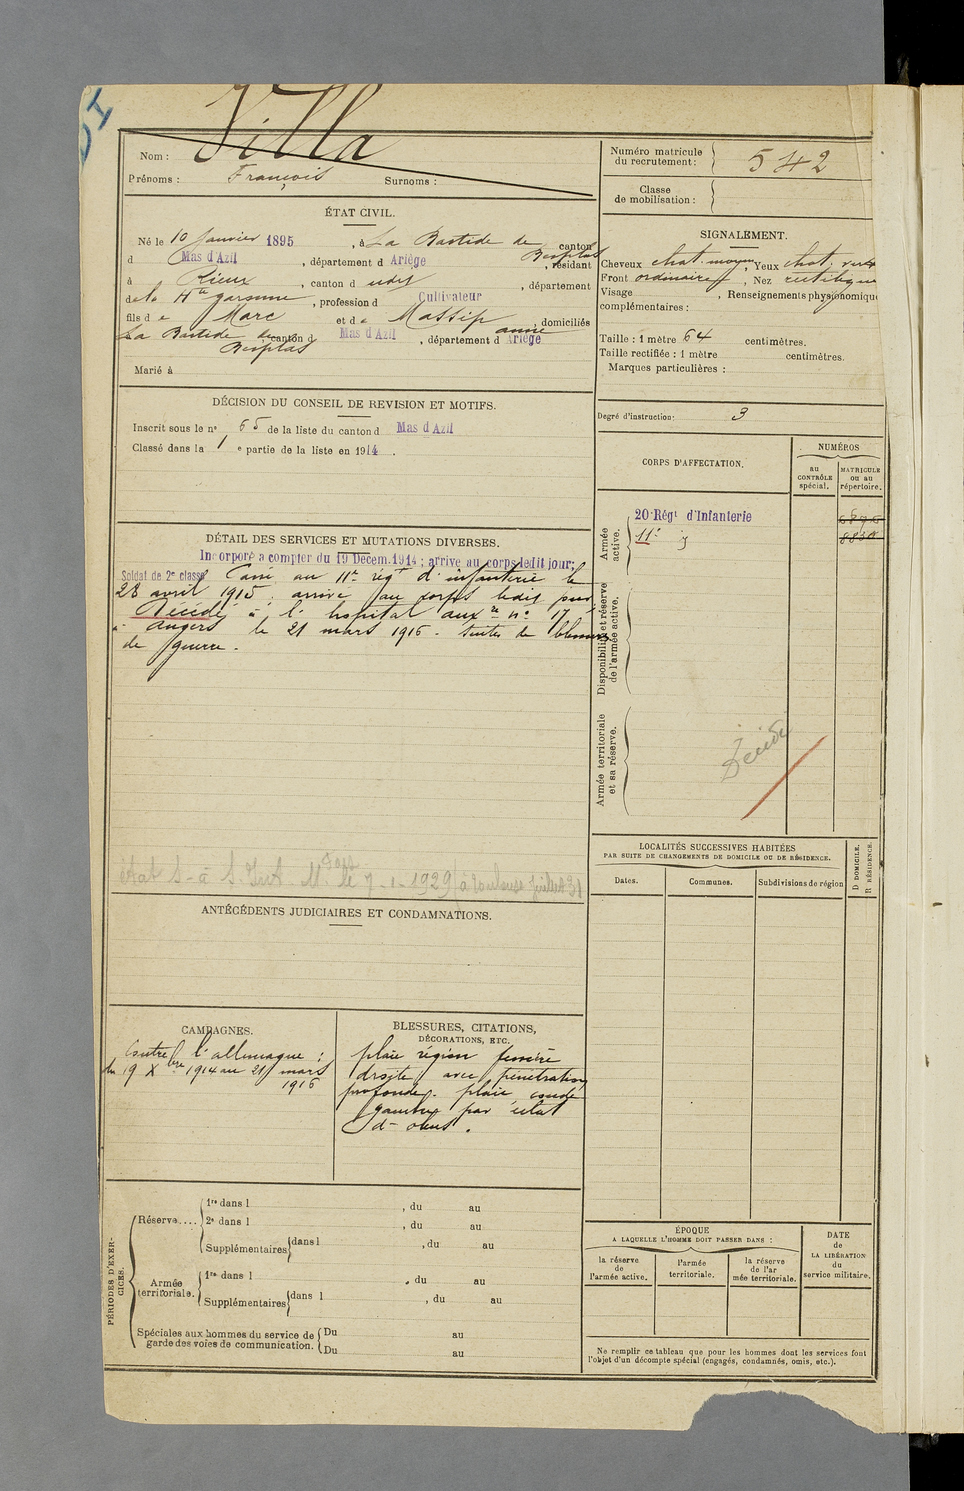 Nom : Villa
Prénoms : François Surnoms :
Numéro matricule du recrutement : 542
Classe de mobilisation :
ÉTAT CIVIL.
Né le 10 Janvier 1895, à La Bastide de Besplas canton
d Mas d'Azil, département d Ariège, résidant
à Rieux, canton d udit, département
de la Hte garonne, profession d Cultivateur
fils de Marc et de Massip anne, domiciliés
La Bastide de Besplas canton d Mas d'Azil, département d Ariège
Marié à
SIGNALEMENT.
Cheveux chat. moyen, Yeux chat. verd
Front ordinaire, Nez rectiligne
Visage , Renseignements physionomique
complémentaires :
Taille : 1 mètre 64 centimètres.
Taille rectifiée : 1 mètre centimètres.
Marques particulières :
Degré d'instruction : 3
DÉCISION DU CONSEIL DE REVISION ET MOTIFS.
Inscrit sous le n° 65 de la liste du canton d Mas d'Azil
Classé dans la 1 e partie de la liste en 1914.
CORPS D'AFFECTATION.
NUMÉROS
au CONTRÔLE spécial.
MATRICULE ou au répertoire.
Armée active.
20e Régt d'Infanterie
11e
Disponibilité et réserve de l'armée active.
Armée territoriale et sa réserve.
DÉTAIL DES SERVICES ET MUTATIONS DIVERSES.
Incorporé à compter du 19 Décem. 1914 ; arrivé au corps ledit jour;
Soldat de 2e classe Passé au 11e régt d'infanterie le
28 avril 1915, arrivé au corps ledit jour
Décédé à l'hopital auxre n° 17
à Angers le 21 mars 1916 - suites de blessures
de guerre.
1929
ANTÉCÉDENTS JUDICIAIRES ET CONDAMNATIONS.
LOCALITÉS SUCCESSIVES HABITÉES
PAR SUITE DE CHANGEMENTS DE DOMICILE OU DE RÉSIDENCE.
Dates.
Communes.
Subdivisions de région
D DOMICILE.
R RÉSIDENCE.
CAMPAGNES.
Contre l'allemagne :
du 19 Xbre 1914 au 21 mars
1916
BLESSURES, CITATIONS,
DÉCORATIONS, ETC.
plaie région fessière
droite avec pénétration
profonde. plaie coude
gauche par éclat
d'obus.
PÉRIODES D'EXERCICES.
Réserve....
1re dans l , du au
2e dans l , du au
Supplémentaires dans l , du au
Armée territoriale.
1re dans l , du au
Supplémentaires dans l , du au
Spéciales aux hommes du service de garde des voies de communication.
Du au
Du au
ÉPOQUE
A LAQUELLE L'HOMME DOIT PASSER DANS :
la réserve de l'armée active.
l'armée territoriale.
la réserve de l'ar mée territoriale.
DATE de LA LIBÉRATION du service militaire.
Ne remplir ce tableau que pour les hommes dont les services font
l'objet d'un décompte spécial (engagés, condamnés, omis, etc.).